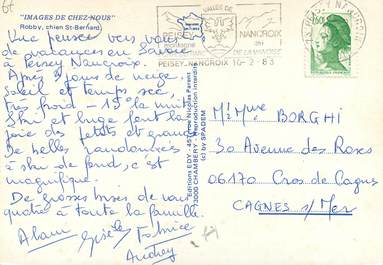 "IMAGES DE CHEZ-NOUS"
Robby, chien St-Bernard
Une pensée vers vous
de vacances en Savoie
à Peisey Nancroix.
Après 2 jours de neige
soleil et temps sec,
très froid - 15 la nuit
Ski et luge font la
joie des petits et grands
De belles randonnées
à ski de fond, c'est
magnifique.
De grosses bises de nous
quatre à toute la famille.
Alain Gisèle Fabrice
Audrey
Editions EDY - 45, rue Nicolas Parent
73000 CHAMBERY - Reproduction interdite
(c) by SPADEM
VALLÉE DE
PEISEY NANCROIX
PEISEY-NANCROIX 10-2-83
1,60
M. Mme BORGHI
30 Avenue des Roses
06170 Cros de Cagnes
CAGNES s/ Mer